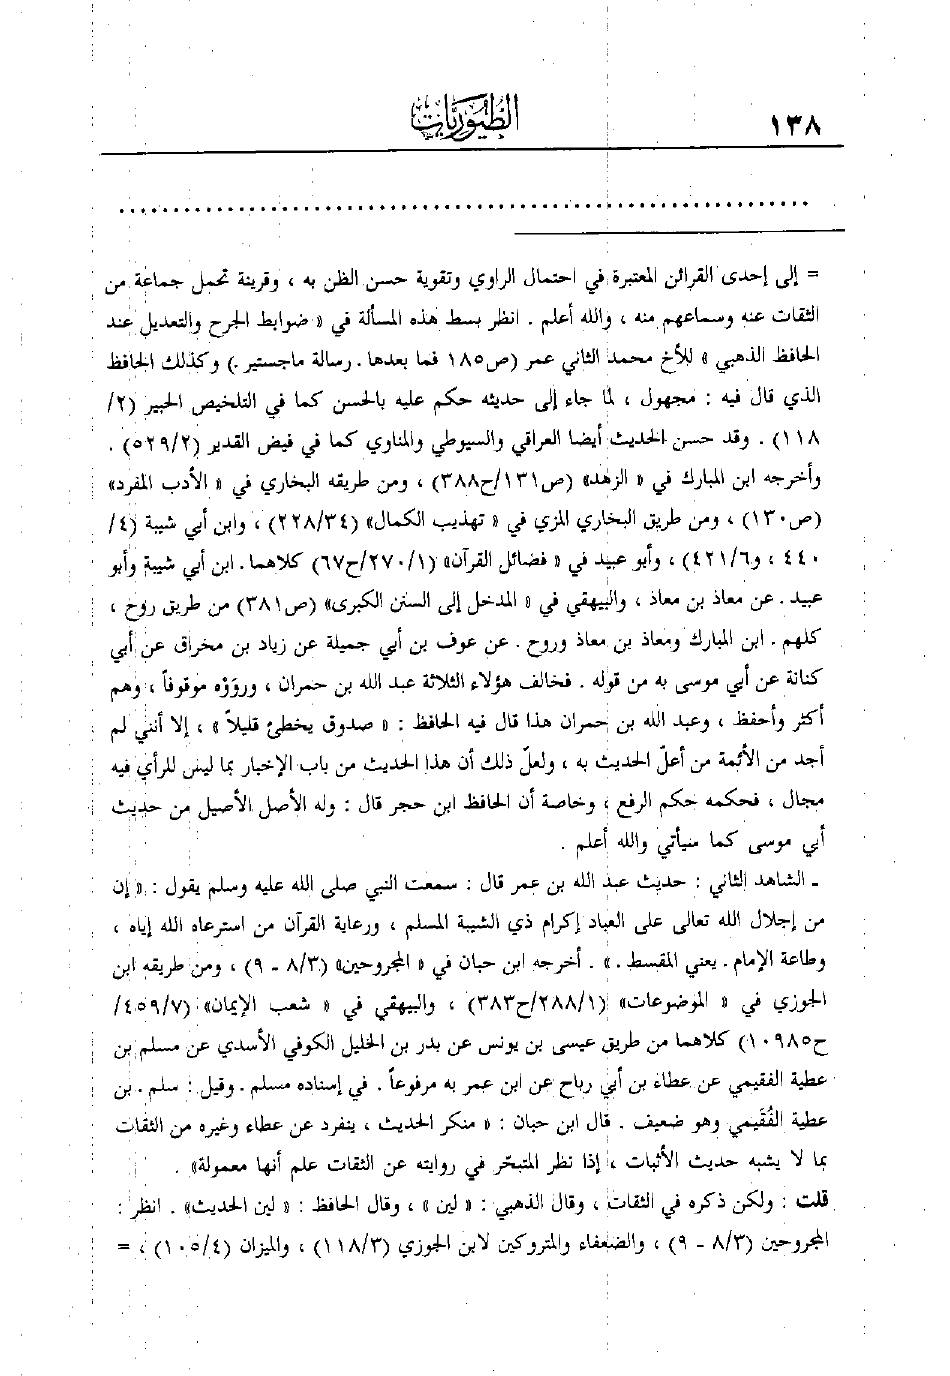 ١٣٨
الطيوريات
................................................................
= إلى إحدى القرائن المعتبرة في احتمال الراوي وتقوية حسن الظن به ، وقرينة تحمل جماعة من
الثقات عنه وسماعهم منه ، والله أعلم . انظر بسط هذه المسألة في « ضوابط الجرح والتعديل عند
الحافظ الذهبي » للأخ محمد الثاني عمر (ص١٨٥ فما بعدها . رسالة ماجستير .) وكذلك الحافظ
الذي قال فيه : مجهول ، لما جاء إلى حديثه حكم عليه بالحسن كما في التلخيص الحبير (٢/
١١٨) . وقد حسن الحديث أيضا العراقي والسيوطي والمناوي كما في فيض القدير (٥٢٩/٢) .
وأخرجه ابن المبارك في « الزهد» (ص١٣١/ح٣٨٨) ، ومن طريقه البخاري في « الأدب المفرد»
(ص١٣٠) ، ومن طريق البخاري المزي في « تهذيب الكمال» (٢٢٨/٣٤) ، وابن أبي شيبة (٤/
٤٤٠ ، و٤٢١/٦) ، وأبو عبيد في « فضائل القرآن» (٢٧٠/١/ح٦٧) كلاهما . ابن أبي شيبة وأبو
عبيد . عن معاذ بن معاذ ، والبيهقي في « المدخل إلى السنن الكبرى» (ص٣٨١) من طريق روح ،
كلهم . ابن المبارك ومعاذ بن معاذ وروح . عن عوف بن أبي جميلة عن زياد بن مخراق عن أبي
كنانة عن أبي موسى به من قوله . فخالف هؤلاء الثلاثة عبد الله بن حمران ، ورَوَوْه موقوفاً ، وهم
أكثر وأحفظ ، وعبد الله بن حمران هذا قال فيه الحافظ : « صدوق يخطئ قليلاً » ، إلا أنني لم
أجد من الأئمة من أعلّ الحديث به ، ولعلّ ذلك أن هذا الحديث من باب الإخبار بما ليس للرأي فيه
مجال ، فحكمه حكم الرفع ، وخاصة أن الحافظ ابن حجر قال : وله الأصل الأصيل من حديث
أبي موسى كما سيأتي والله أعلم .
ـ الشاهد الثاني : حديث عبد الله بن عمر قال : سمعت النبي صلى الله عليه وسلم يقول : « إن
من إجلال الله تعالى على العباد إكرام ذي الشيبة المسلم ، ورعاية القرآن من استرعاه الله إياه ،
وطاعة الإمام . يعني المقسط . » . أخرجه ابن حبان في « المجروحين» (٨/٣ - ٩) ، ومن طريقه ابن
الجوزي في « الموضوعات» (٢٨٨/١/ح٣٨٣) ، والبيهقي في « شعب الإيمان» (٤٥٩/٧/
ح١٠٩٨٥) كلاهما من طريق عيسى بن يونس عن بدر بن الخليل الكوفي الأسدي عن مسلم بن
عطية الفقيمي عن عطاء بن أبي رباح عن ابن عمر به مرفوعاً . في إسناده مسلم . وقيل : سلم . بن
عطية الفُقَيمي وهو ضعيف . قال ابن حبان : « منكر الحديث ، ينفرد عن عطاء وغيره من الثقات
بما لا يشبه حديث الأثبات ، إذا نظر المتبحّر في روايته عن الثقات علم أنها معمولة» .
قلت : ولكن ذكره في الثقات ، وقال الذهبي : « لين » ، وقال الحافظ : « لين الحديث» . انظر :
المجروحين (٨/٣ - ٩) ، والضعفاء والمتروكين لابن الجوزي (١١٨/٣) ، والميزان (١٠٥/٤) ، =